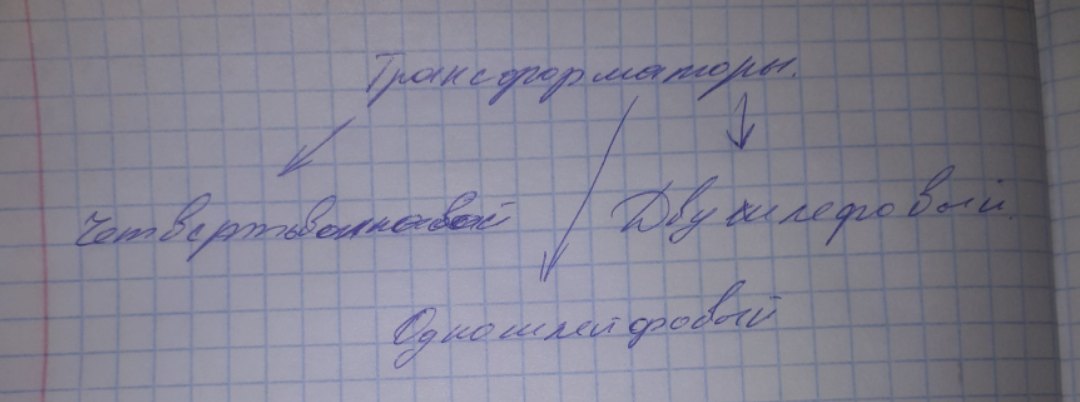 Трансформаторы.
Четвертьволновой
Двухшлефовый.
Одношлейфовый